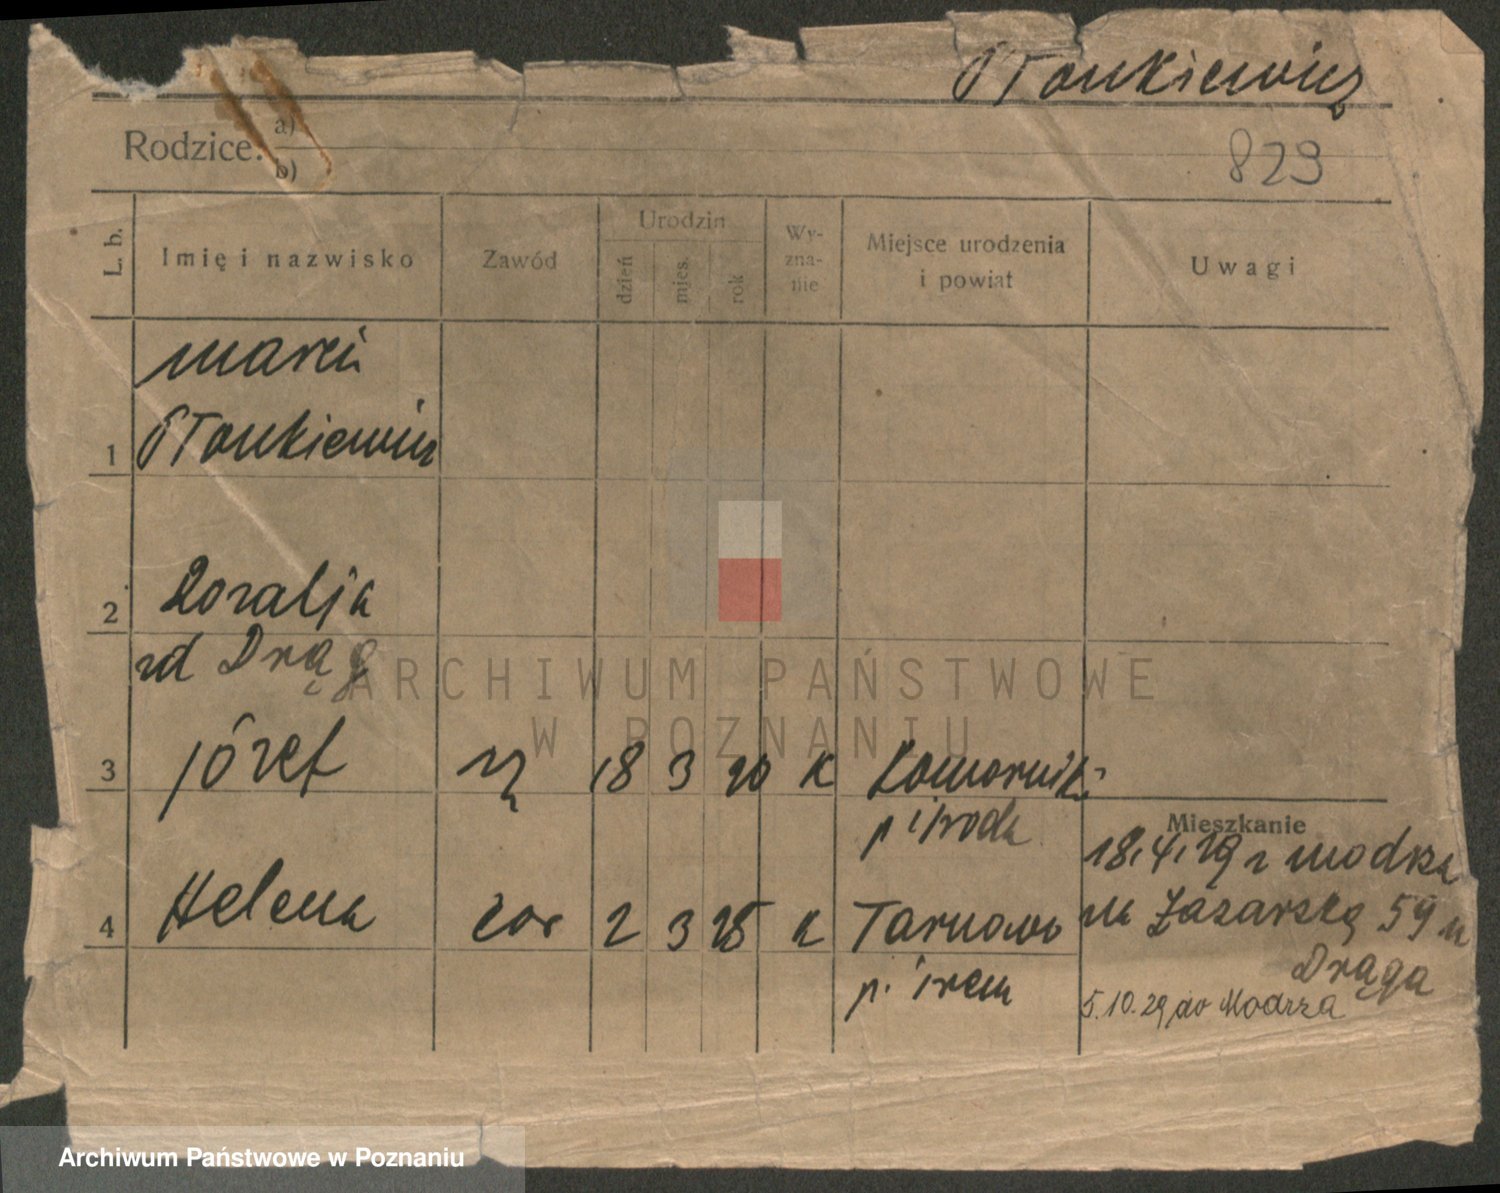 Stankiewicz
Rodzice: a)
b)
829
L. b.
Imię i nazwisko
Zawód
Urodzin
dzień
mies.
rok
Wy-
zna-
nie
Miejsce urodzenia
i powiat
Uwagi
Marcin
1 Stankiewicz
2 Rozalja
zd Drąg
3 Józef 18 3 20 K Komorniki
p Środa
Mieszkanie
18.4.29 z Modrza
4 Helena cór 2 3 25 K Tarnowo
na Łazarską 59 u
Drąga
p. Śrem
5.10.29 do Modrza
ARCHIWUM PAŃSTWOWE
W POZNANIU
Archiwum Państwowe w Poznaniu